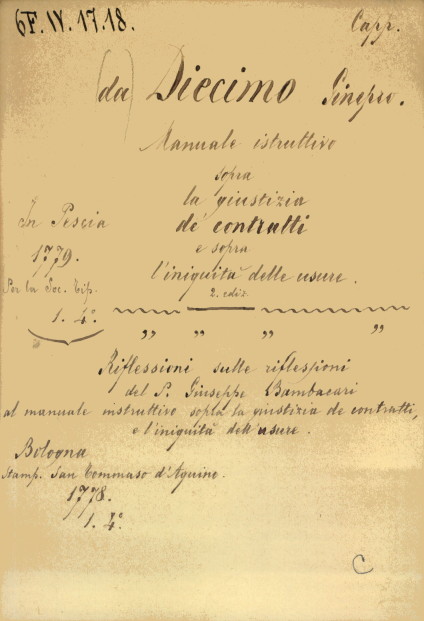 6F. IV. 17. 18.
Capp.
(da) Diecimo Ginepro.
Manuale istruttivo
sopra
la giustizia
In Pescia
de contratti
1779.
e sopra
l'iniquità delle usure.
Per la Soc. Tip.
2. ediz.
1. 4°.
" " " "
Riflessioni sulle riflessioni
del P. Giuseppe Bambacari
al manuale instruttivo sopra la giustizia de contratti,
e l'iniquità dell'usure.
Bologna
Stamp. San Tommaso d'Aquino.
1778.
1. 4°.
C